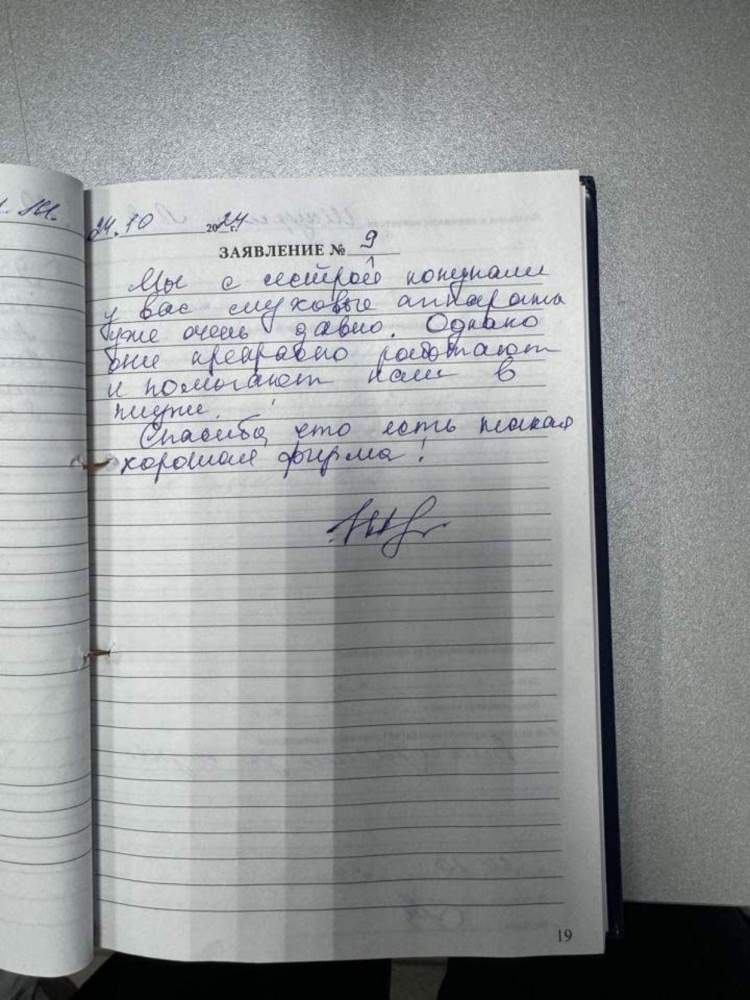 24.10 2024 г.
ЗАЯВЛЕНИЕ № 9
Мы с сестрой покупали
у вас слуховые аппараты
уже очень давно. Однако
они исправно работают
и помогают нам в
жизни.
Спасибо, что есть такая
хорошая фирма!
19